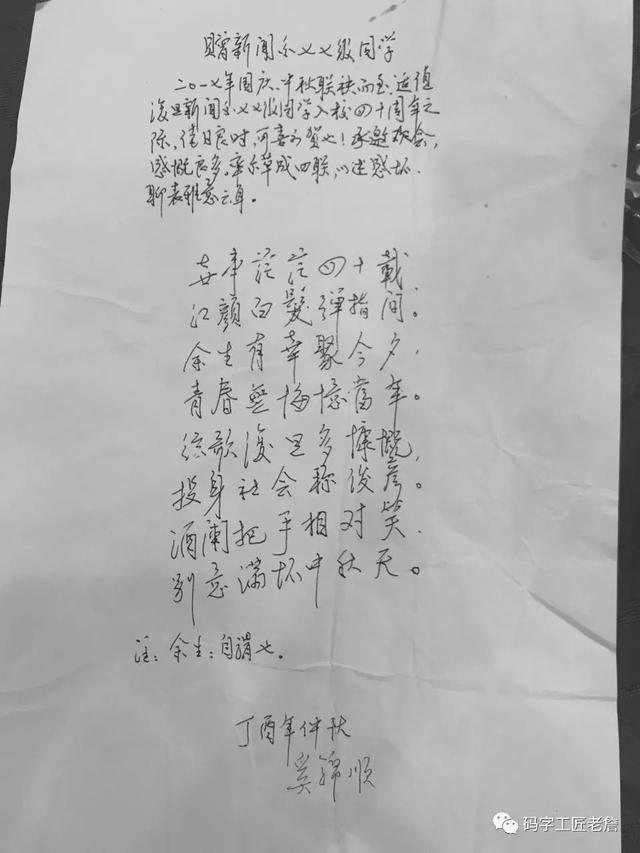 贈新闻系七七级同学
二〇一七年国庆、中秋联袂而至,适值
复旦新闻系七七级同学入校四十周年之
际,佳日良时,可喜可贺也!承邀欢会,
感慨良多。率尔草成四联,以述感怀.
聊表雅意云耳。
世事茫茫四十載
红颜白髮弹指间。
余生有幸聚今夕,
青春無悔憶當年。
弦歌復旦多慷慨,
投身社会称俊彦。
酒阑把手相对笑.
别意满怀中秋天。
注:余生:自謂也。
丁酉年仲秋
吴锦顺
码字工匠老詹